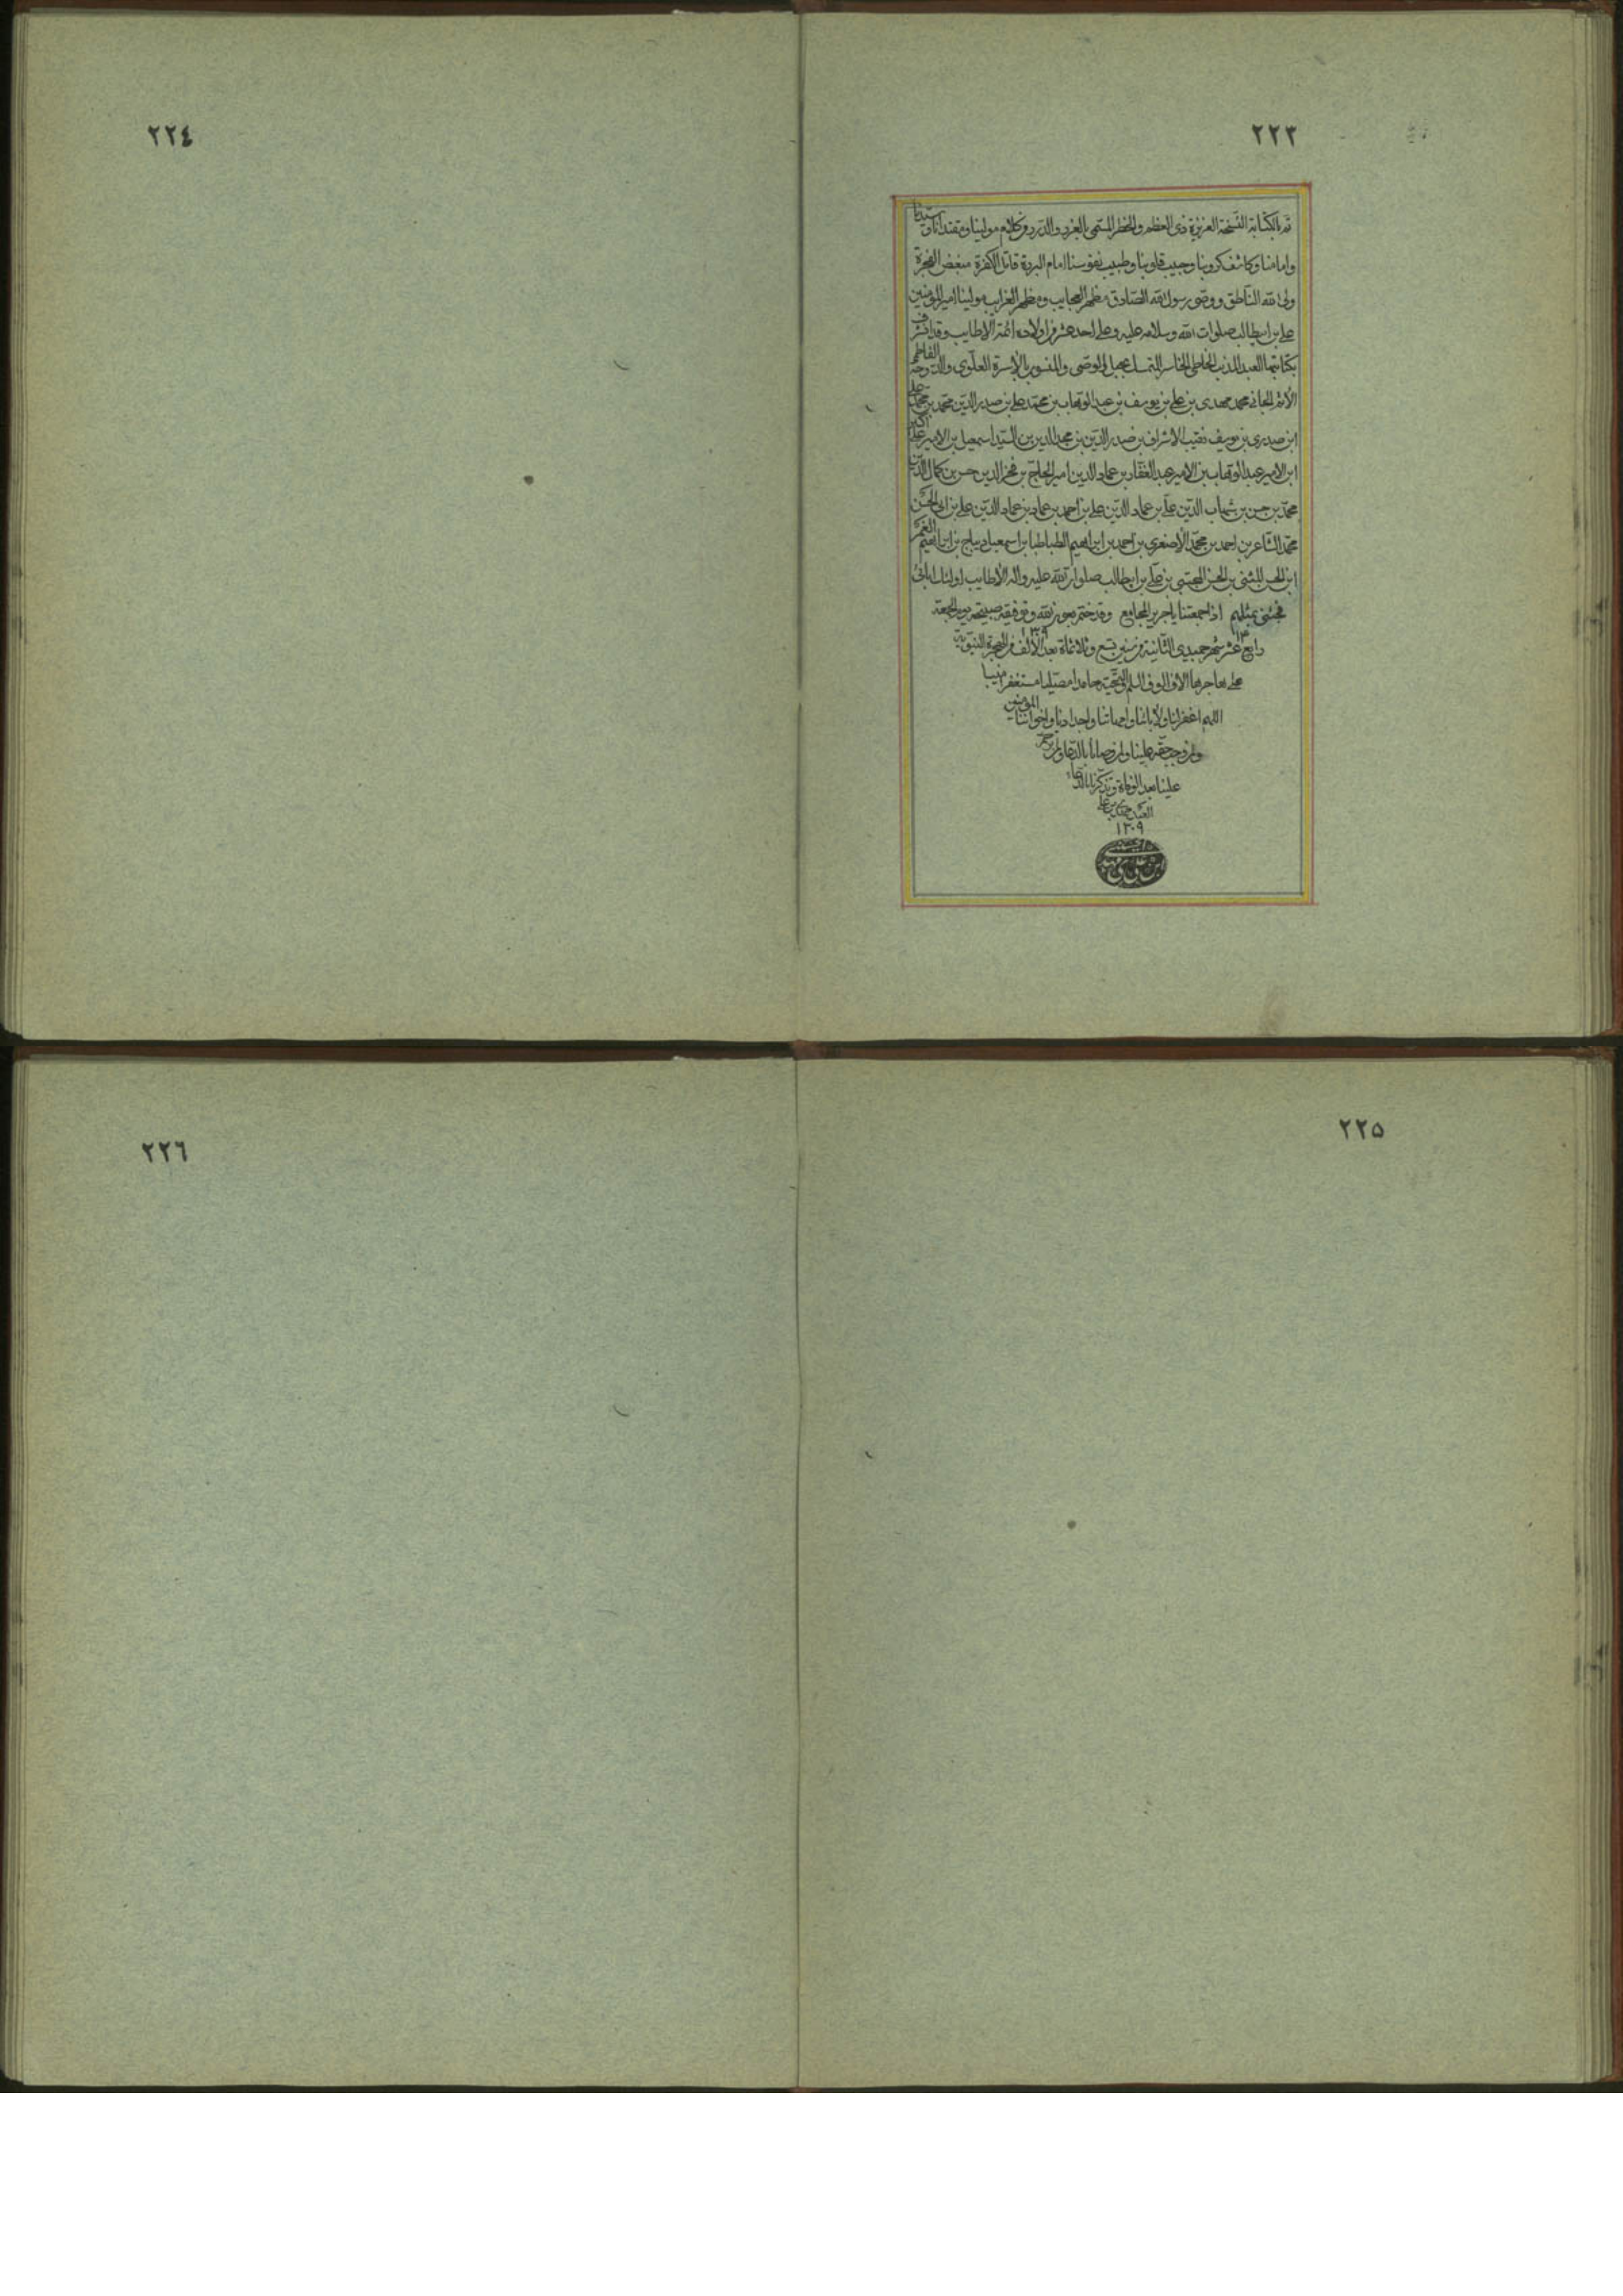 ٢٢٣
تم بالكتابة النسخة العزيزة ذى العظم والخطر المسمى بالغرر والدرر من كلام مولينا ومقتدانا وسيدنا
وامامنا وكاشف كروبنا وحبيب قلوبنا وطبيب نفوسنا امام البررة قاتل الكفرة مبغض الفجرة
ولى الله الناطق ووصى رسول الله الصادق مظهر العجايب ومظهر الغرايب مولينا امير المؤمنين
على بن ابيطالب صلوات الله وسلامه عليه وعلى احد عشر من اولاده ائمة الاطايب وقد تشرف
بكتابتها العبد المذنب الخاطى الخاسر المتمسك بحبل الوصى والمنسوب بالاسرة العلوى والدوحة الفاطمى
الآثم الجانى محمد مهدى بن على بن يوسف بن عبد الوهاب بن محمد على بن صدر الدين محمد بن محمد على
ابن صدرى بن يوسف نقيب الاشراف بن صدر الدين بن مجد الدين بن السيد اسمعيل بن الامير على اكبر
ابن الامير عبد الوهاب بن الامير عبد الغفار بن عماد الدين امير الحاج بن فخر الدين حسن بن كمال الدين
محمد بن حسن بن شهاب الدين على بن عماد الدين على بن احمد بن عماد بن عماد الدين على بن ابى الحسن
محمد الشاعر بن احمد بن محمد الأصغر بن احمد بن ابراهيم الطباطبا بن اسمعيل ديباج بن ابراهيم الغمر
ابن الحسن المثنى بن الحسن المجتبى بن على بن ابيطالب صلوات الله عليه واله الأطايب اولئك ابائى
فجئنى بمثلهم اذا جمعتنا ياجرير المجامع وقد ختم بعون الله وتوفيقه صبيحة يوم الجمعة
رابع عشر شهر جميدى الثانية من سنين تسع وثلاثماة بعد الألف من الهجرة النبوية
على مهاجرها الاف الوف السلام والتحية حامدا مصليا مستغفرا منيبا
اللهم اغفر لنا ولأبائنا وامهاتنا واجدادنا واخواننا المؤمنين
ولمن وجب حقه علينا ولمن وصانا بالدعا ولمن ترحم
علينا بعد الوفاة وتذكرنا بالدعاء
العبد مهدى بن على
١٣٠٩
٢٢٤
٢٢٥
٢٢٦